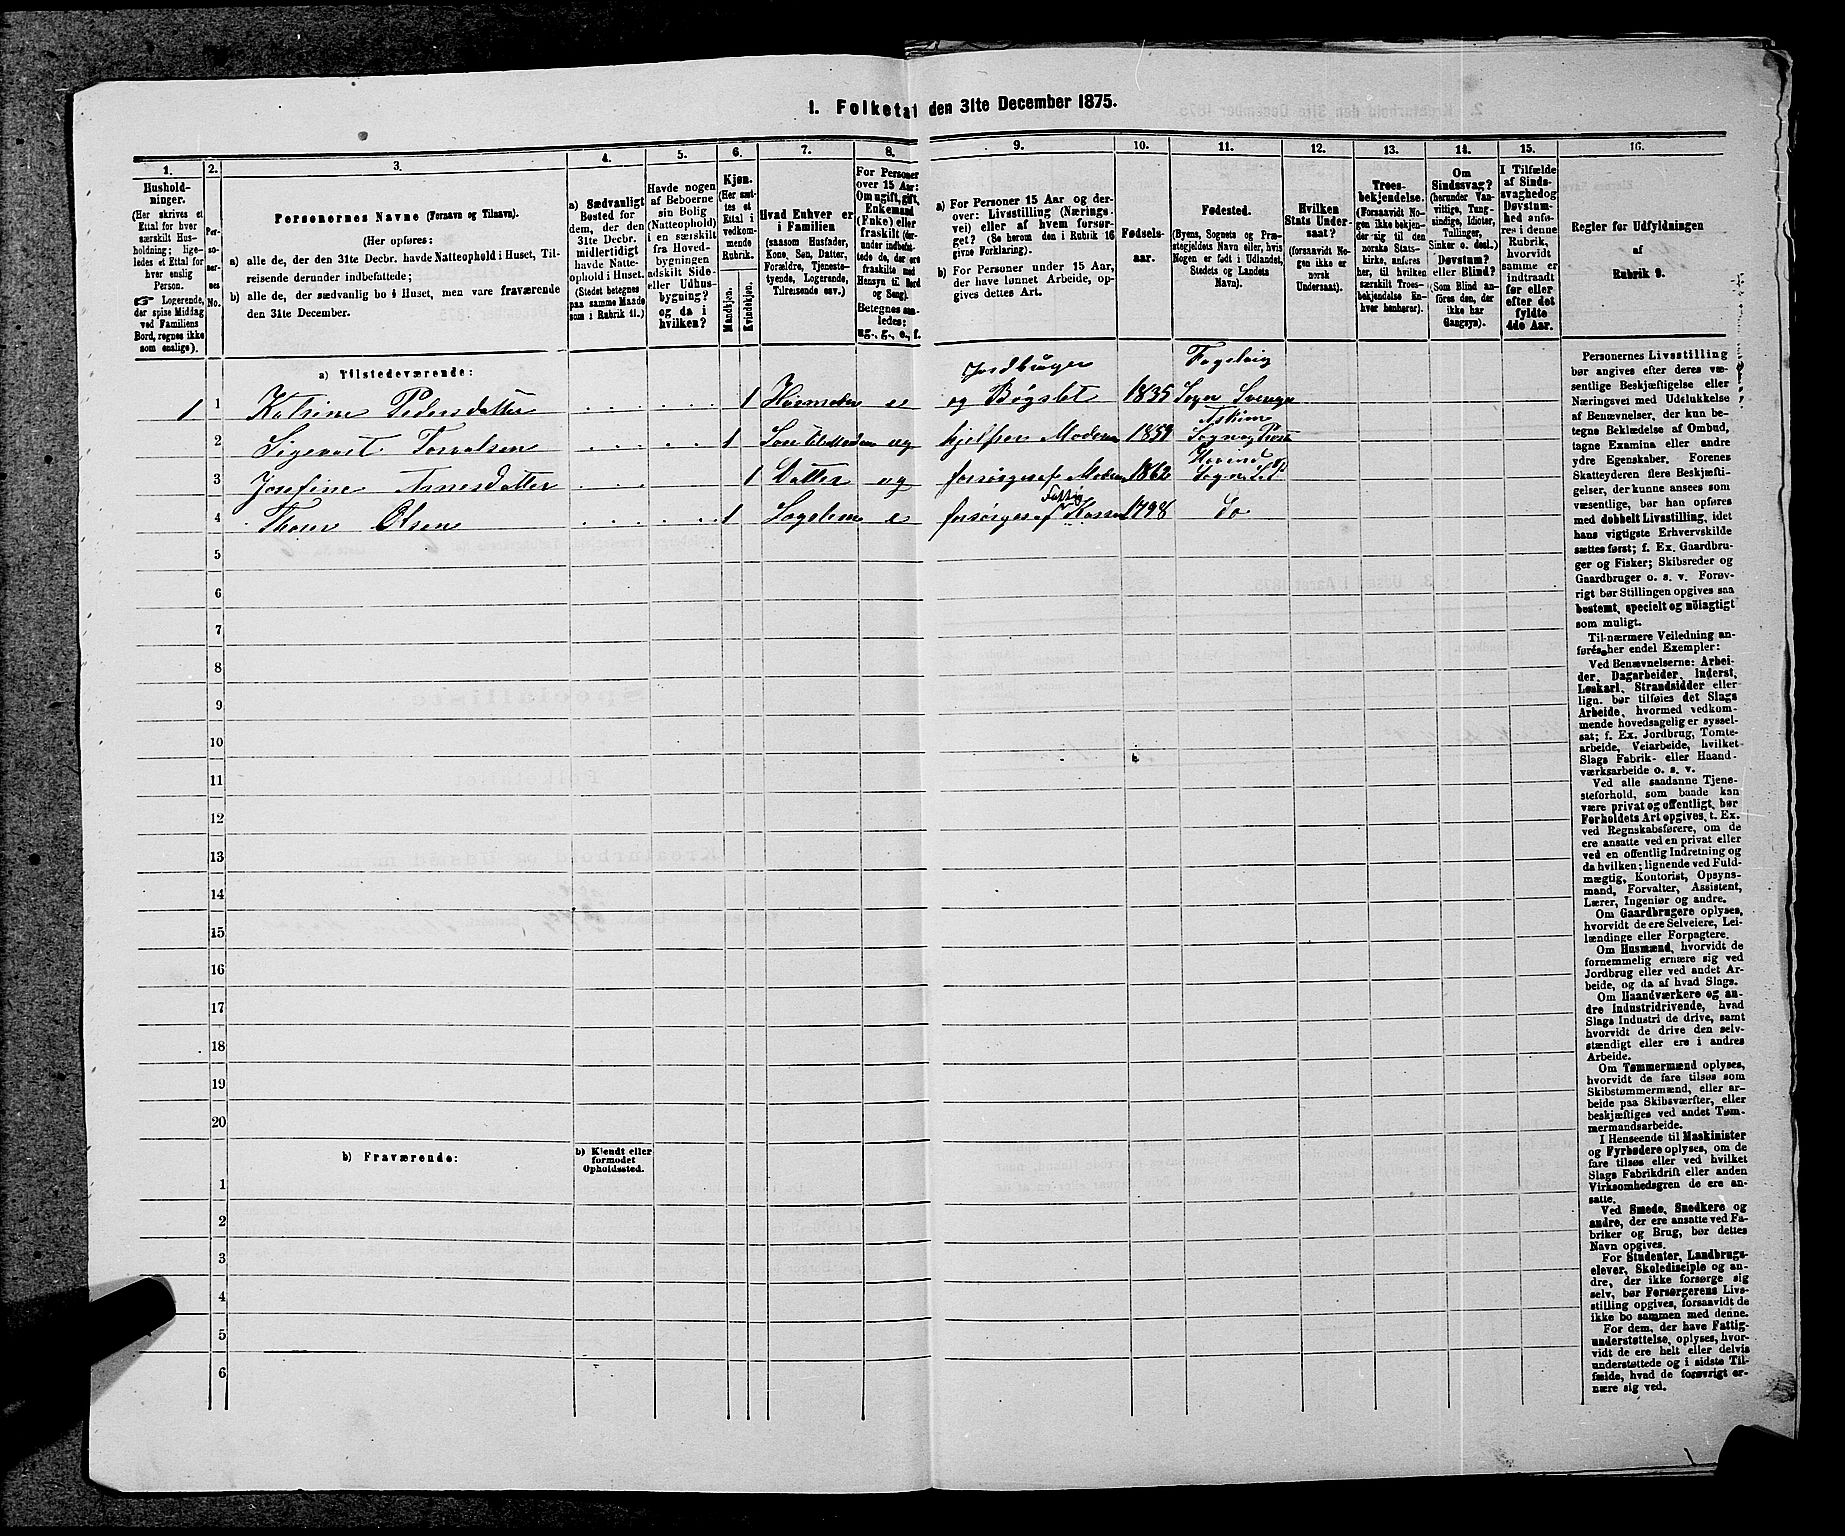 1. Folketal den 31te December 1875.
1.
2.
3.
4.
5.
6.
7.
8.
9.
10.
11.
12.
13.
14.
15.
16.
Hushold-
ninger.
(Her skrives et
Ettal for hver
særskilt Hus-
holdning; lige-
ledes et Ettal for
hver enslig
Person.
☞ Logerende,
der spise Middag
ved Familiens
Bord, regnes ikke
som enslige).
Per-
so-
ner-
nes
No.
Personernes Navne (Fornavn og Tilnavn).
(Her opføres:
a) alle de, der den 31te Decbr. havde Natteophold i Huset, Til-
reisende derunder indbefattede;
b) alle de, der sædvanlig bo i Huset, men vare fraværende
den 31te December.
a) Sædvanligt
Bosted for
dem, der den
31te Decbr.
midlertidigt
havde Natte-
ophold i Huset.
(Stedet betegnes
paa samme Maade
som i Rubrik 11.)
Havde nogen
af Beboerne
sin Bolig
(Natteophold)
i en særskilt
fra Hoved-
bygningen
adskilt Side-
eller Udhus-
bygning?
og da i
hvilken?
Kjøn.
(Her sæt-
tes et
Ettal i
vedkom-
mende
Rubrik.
Mandkjøn.
Kvindekjøn.
Hvad Enhver er
i Familien
(saasom Husfader,
Kone, Søn, Datter,
Forældre, Tjeneste-
tyende, Logerende,
Tilreisende osv.)
For Personer
over 15 Aar:
Om ugift, gift,
Enkemand
(Enke) eller
fraskilt (der-
under indbefat-
tede de, der ere
fraskilte med
Hensyn til Bord
og Seng).
Betegnes saa-
ledes:
ug., g., e., f.
a) For Personer 15 Aar og der-
over: Livsstilling (Nærings-
vei) eller af hvem forsør-
get? (Se herom den i Rubrik 16
givne Forklaring).
b) For Personer under 15 Aar,
der have lønnet Arbeide, op-
gives dettes Art.
Fødsels-
aar.
Fødested.
(Byens, Sognets og Præ-
stegjeldets Navn eller, hvis
Nogen er født i Udlandet,
Stedets og Landets
Navn).
Hvilken
Stats Under-
saat?
(forsaavidt No-
gen ikke er
norsk
Undersaat).
Troes-
bekjendelse.
(Forsaavidt No-
gen ikke bekjen-
der sig til den
norske Stats-
kirke, anføres
her, til hvilken
særskilt Troes-
bekjendelse En-
hver henhører).
Om
Sindssvag?
(herunder Van-
vittige, Tung-
sindige, Idioter,
Tullinger,
Sinker o. desl.)
Døvstum?
eller Blind?
(Som Blind an-
føres den, der
ikke har
Gangsyn).
I Tilfælde
af Sinds-
svaghed og
Døvstum-
hed anfø-
res i denne
Rubrik,
hvorvidt
samme er
indtraadt
før eller
efter det
fyldte
4de Aar.
Regler for Udfyldningen
af
Rubrik 9.
a) Tilstedeværende:
Jordbruger
Fogelvig
1 1 Katrine Pedersdatter 1 Huusmoder e og Bøgslet 1835 Sogn Sverige
Askim
2 Sigevart Torvalsen 1 Søn til Moderen ug hjelper Moderen 1859 Sogn og Præst
Hovind
3 Josefine Arnesdatter 1 Datter ug forsørges af Moderen 1862 Sogn
Fattig
4 Thore Olsen 1 Logerende e forsørges af Kassen 1798 Do
5
6
7
8
9
10
11
12
13
14
15
16
17
18
19
20
b) Fraværende:
b) Kjendt eller
formodet
Opholdssted.
1
2
3
4
5
6
Personernes Livsstilling
bør angives efter deres væ-
sentlige Beskjæftigelse eller
Næringsvei med Udelukkelse
af Benævnelser, der kun be-
tegne Beklædelse af Ombud,
tagne Examina eller andre
ydre Egenskaber. Forenes
Skatteyderen flere Beskjæfti-
gelser, der kunne ansees som
væsentlige, bør han opføres
med dobbelt Livsstilling, idet
hans vigtigste Erhvervskilde
sættes først; f. Ex. Gaardbru-
ger og Fisker; Skibsreder og
Gaardbruger o. s. v. Forøv-
rigt bør Stillingen opgives saa
bestemt, specielt og nöiagtigt
som muligt.
Til nærmere Veiledning an-
føres her endel Exempler:
Ved Benævnelserne: Arbei-
der, Dagarbeider, Inderst,
Løskarl, Strandsidder eller-
lign. bør tilføies det Slags
Arbeide, hvormed vedkom-
mende hovedsagelig er syssel-
sat; f. Ex. Jordbrug, Tomte-
arbeide, Veiarbeide, hvilket
Slags Fabrik- eller Haand-
værksarbeide o. s. v.
Ved alle saadanne Tjene-
steforhold, som baade kan
være privat og offentligt, bør
Forholdets Art opgives, t. Ex.
ved Regnskabsførere, om de
ere ansatte ved en privat eller
ved en offentlig Indretning og
da hvilken; lignende ved Fuld-
mægtig, Kontorist, Opsyns-
mand, Forvalter, Assistent,
Lærer, Ingeniør og andre.
Om Gaardbrugere oplyses,
hvorvidt de ere Selveiere, Lei-
lændinge eller Forpagtere.
Om Husmænd, hvorvidt de
fornemmelig ernære sig ved
Jordbrug eller ved andet Ar-
beide, og da af hvad Slags.
Om Haandværkere og an-
dre Industridrivende, hvad
Slags Industri de drive, samt
hvorvidt de drive den selv-
stændigt eller ere i andres
Arbeide.
Om Tømmermænd oplyses,
hvorvidt de fare tilsøs som
Skibstømmermænd, eller ar-
beide paa Skibsværfter, eller
beskjæftiges ved andet Tøm-
mermandsarbeide.
I Henseende til Maskinister
og Fyrbødere oplyses, om de
fare tilsøs eller ved hvilket
Slags Fabrikdrift eller anden
Virksomhedsgren de ere an-
satte.
Ved Smede, Snedkere og
andre, der ere ansatte ved Fa-
briker og Brug, bør dettes
Navn opgives.
For Studenter, Landbrugs-
elever, Skoledisciple og an-
dre, der ikke forsørge sig
selv, bør Forsørgerens Livs-
stilling opgives, forsaavidt de
ikke bo sammen med denne.
For dem, der have Fattig-
understøttelse, oplyses, hvor-
vidt de ere helt eller delvis
understøttede og i sidste Til-
fælde, hvad de forøvrigt er-
nære sig ved.